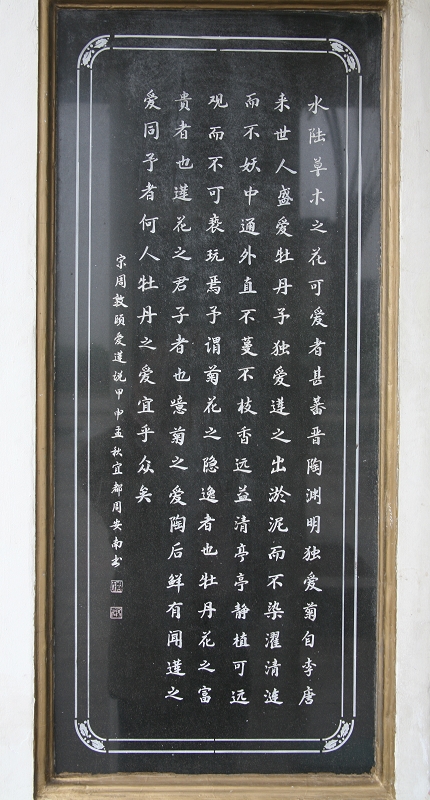 水陆草木之花可爱者甚蕃晋陶渊明独爱菊自李唐
来世人盛爱牡丹予独爱莲之出淤泥而不染濯清涟
而不妖中通外直不蔓不枝香远益清亭亭静植可远
观而不可亵玩焉予谓菊花之隐逸者也牡丹花之富
贵者也莲花之君子者也噫菊之爱陶后鲜有闻莲之
爱同予者何人牡丹之爱宜乎众矣
宋周敦颐爱莲说甲申孟秋宜都周安南书